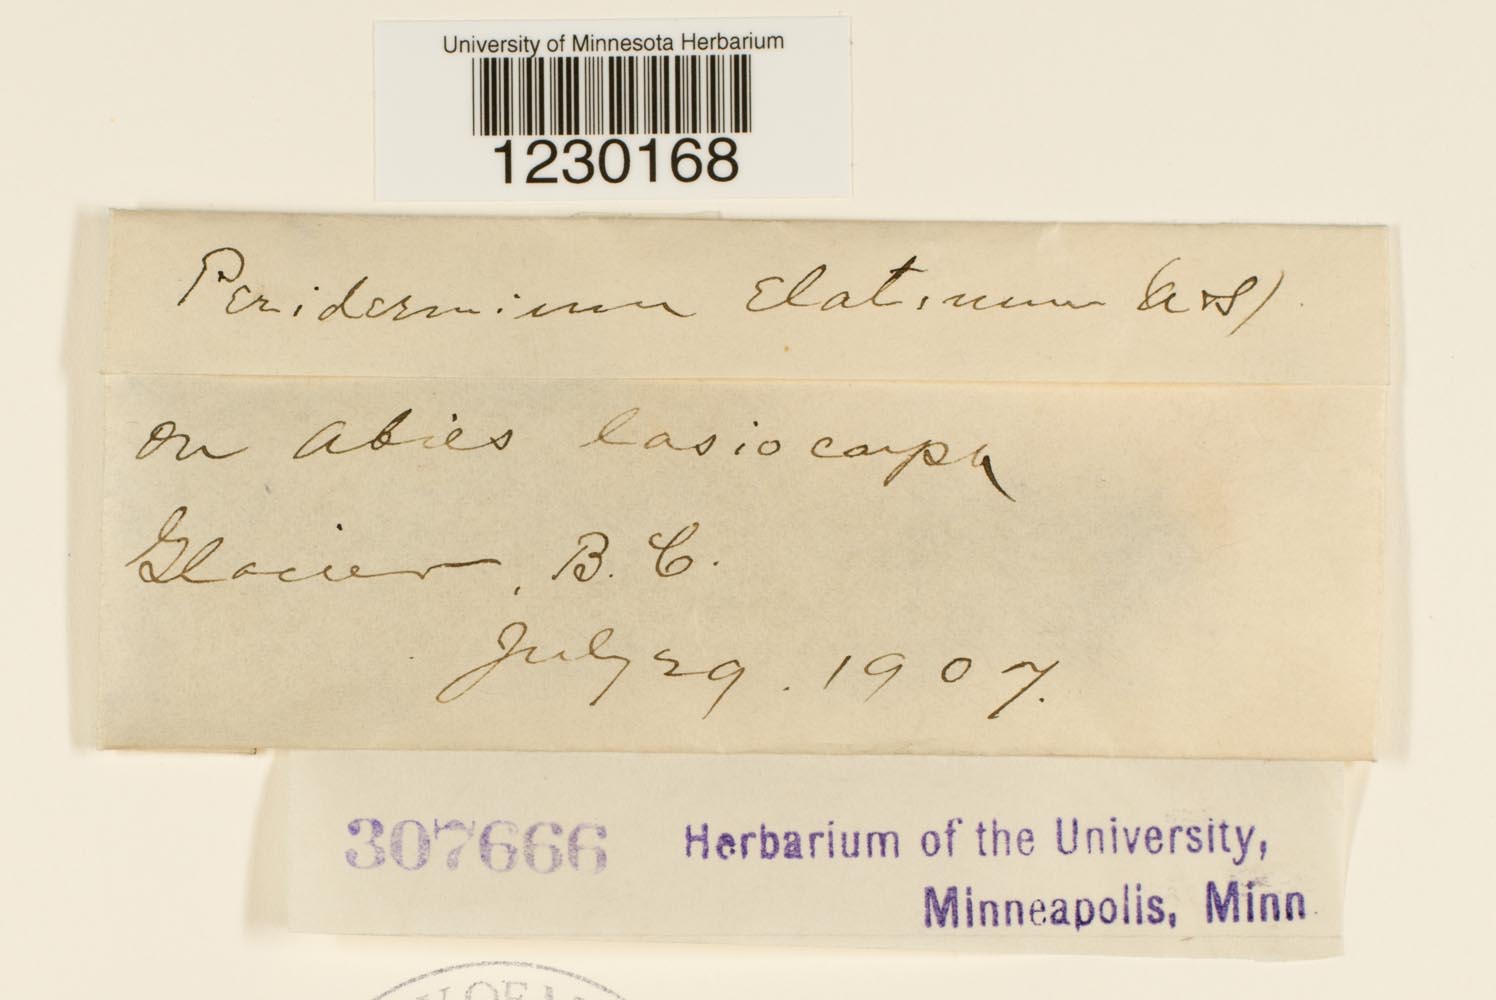 University of Minnesota Herbarium
1230168
Peridermium Elatinum (A & S)
on Abies lasiocarpa
Glacier, B. C.
July 29. 1907.
307666
Herbarium of the University,
Minneapolis, Minn.